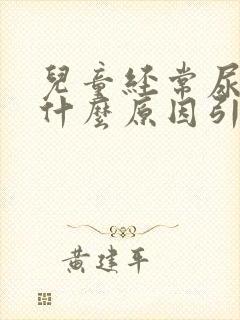 兒童経常尿
什麼原因引
黃建平